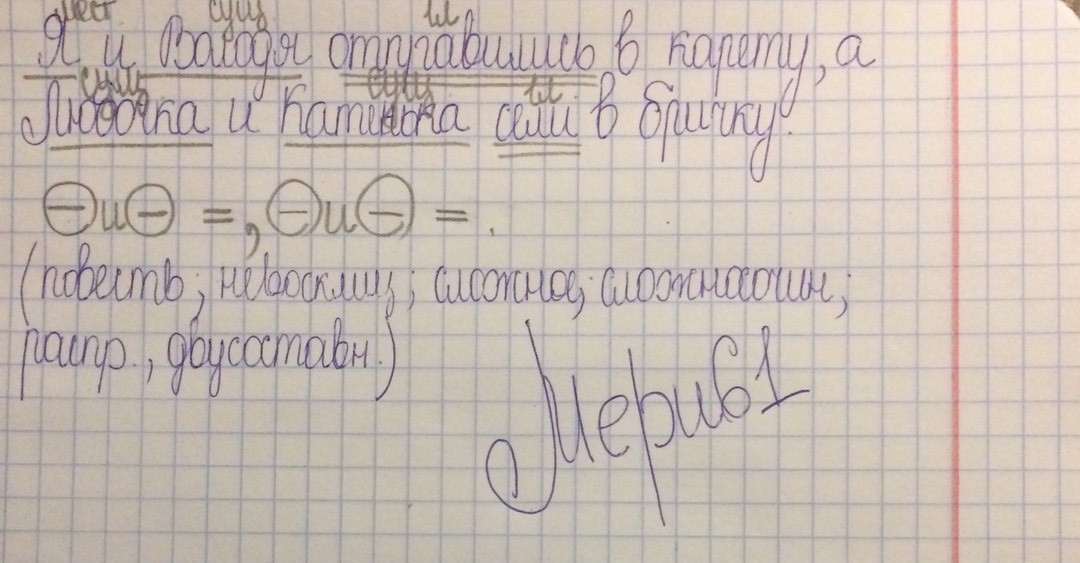 мест сущ гл
Я и Володя отправились в карету, а
сущ сущ гл
Любочка и Катенька сели в бричку.
и = , и = .
(повеств; невосклиц; сложное; сложносочин;
распр., двусоставн.)
Мерив1